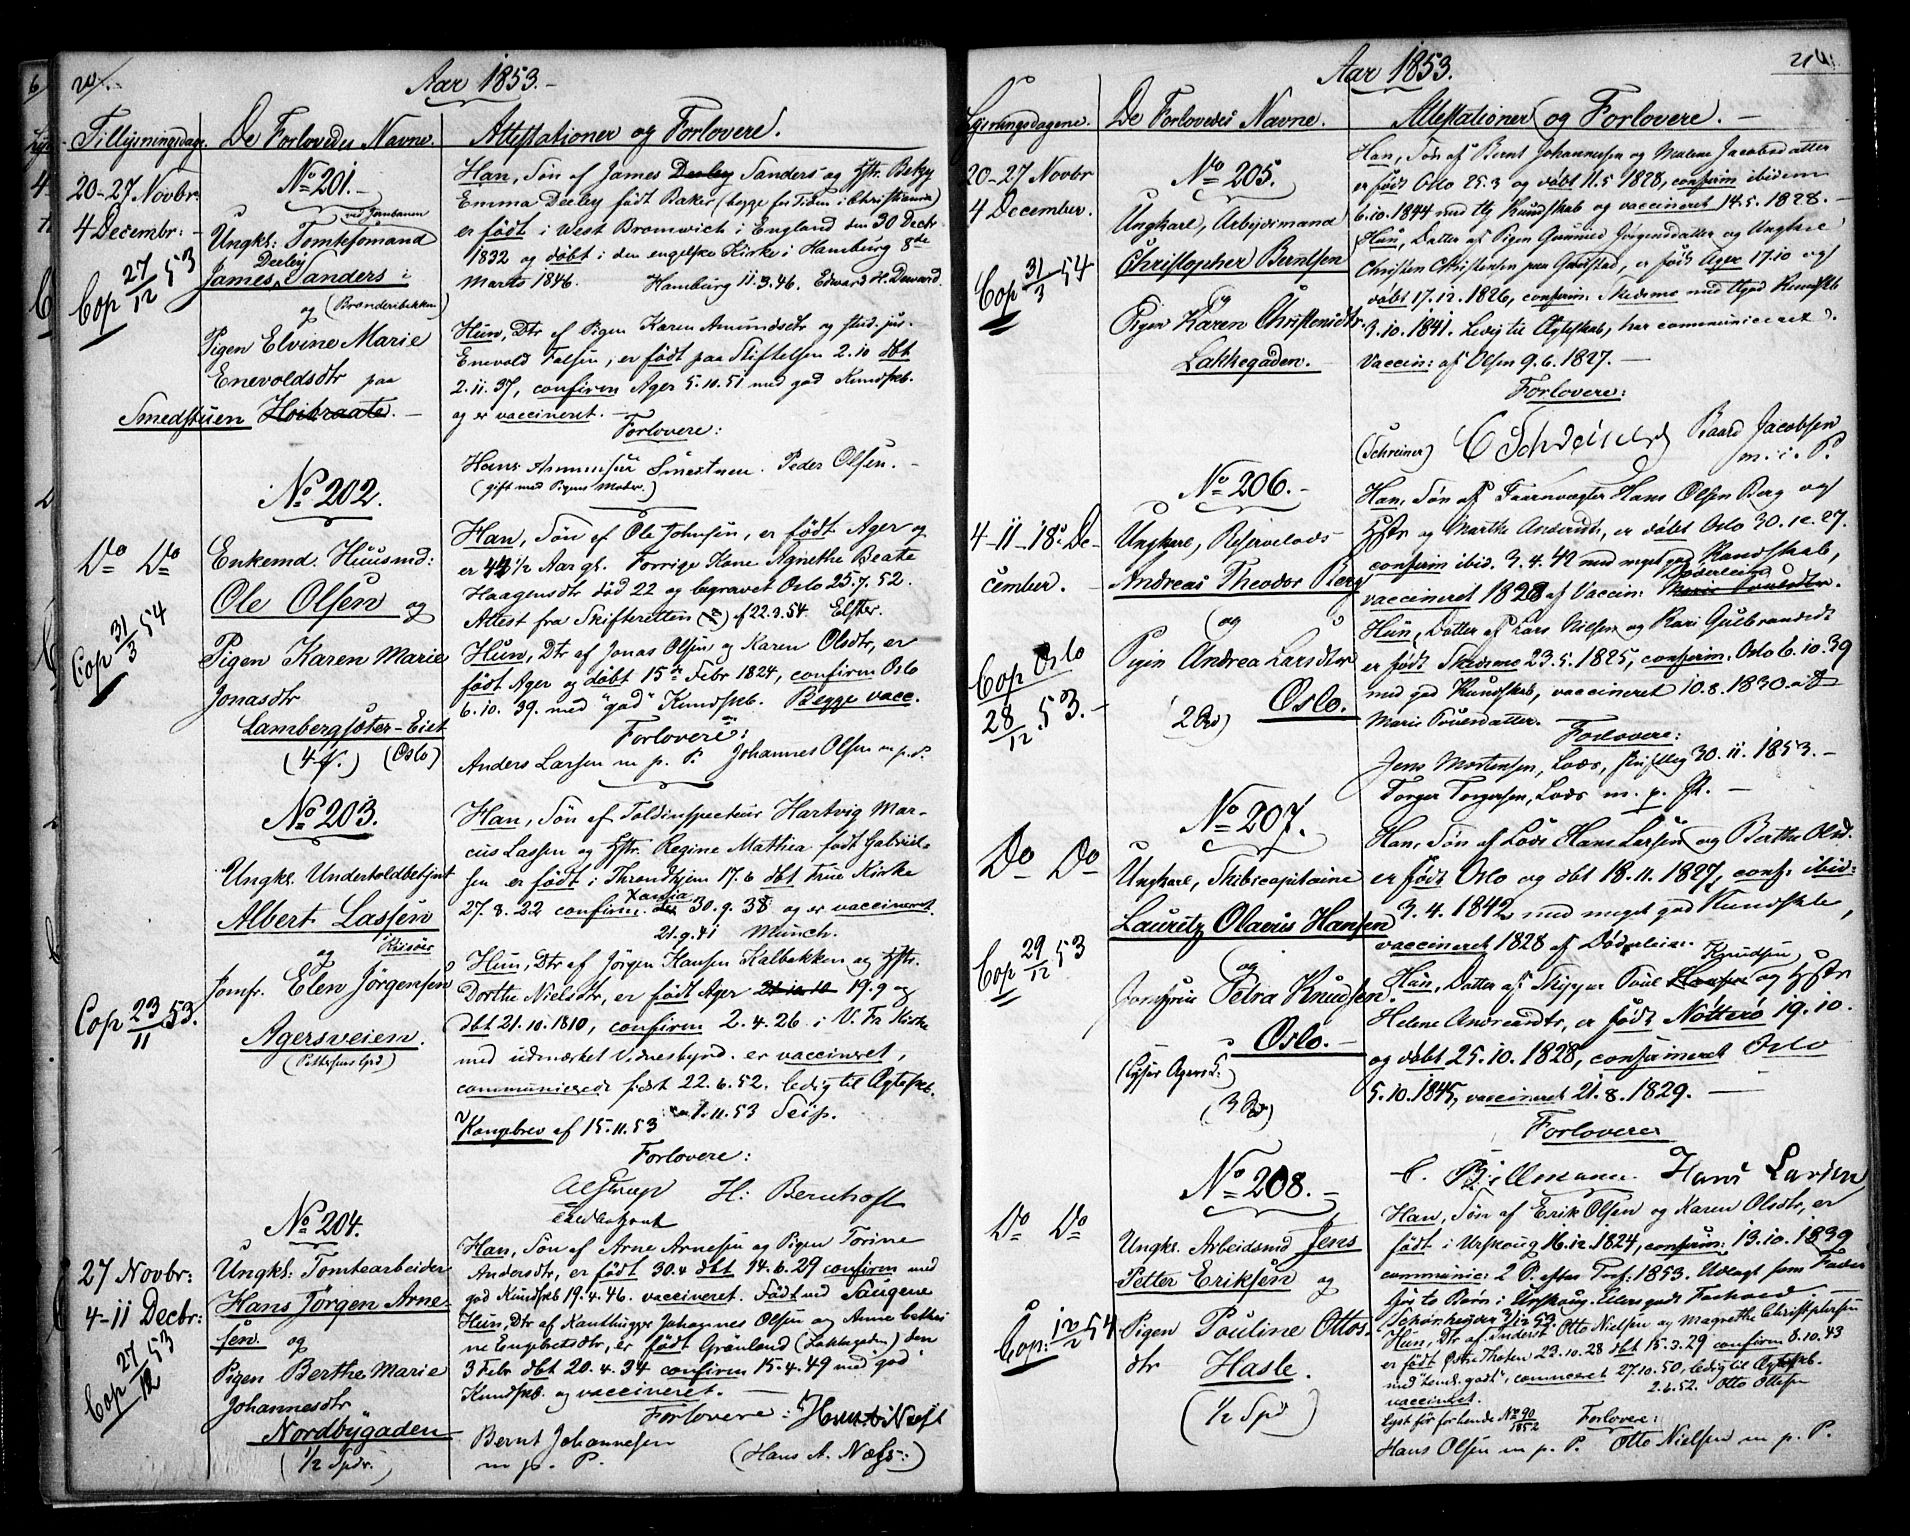 Aar 1853.-
Tillysningsdag. De Forlovedes Navne. Attestationer og Forlovere.
20-27 Novbr:
4 Decembr:
Cop 27/12 53
No 201.-
ved Jernbanen
Ungkl: Tomtesømand
Deeley
James Sanders
og (Brænderibakken)
Pigen Elvine Marie
Enevoldsdtr paa
Smedstuen Høibraate.-
Han, Søn af James Deeley Sanders og Hstr. Beky
Emma Deeley født Baker (begge for Tiden i Christiania)
er født i West Bromwich i England den 30 Decbr
1832 og døbt i den engelske Kirke i Hamburg 8de
Marts 1846. Hamburg 11.3.46. Edward H. Deward.
Hun, Dtr af Pigen Karen Amundsdtr og stud. jus.
Enevold Falsen, er født paa Stiftelsen 2.10 dbt
2.11.37, confirm Ager 5.10.51 med god Kundskb.
og er vaccineret.-
Forlovere:
Hans Ammunsen Smestuen. Peder Olsen.-
(gift med Pigens Moder.)
Do Do
Cop 31/3 54
No 202.
Enkemd. Huusmd:
Ole Olsen og
Pigen Karen Marie
Jonasdtr
Lambergsæter-Eiet
(Oslo)
Han, Søn af Ole Johnsen, er født Ager og
er 44 1/2 Aar gl. Forrige Kone Agnethe Beate
Haagensdtr død 22 og begravet Oslo 25.7.52.
Attest fra Skifteretten af 22.3.54. Elster.
Hun, Dtr af Jonas Olsen og Karen Olsdtr, er
født Ager og døbt 15de Febr 1824, confirm Oslo
6.10.39. med "god" Kundskb. Begge vacc.
Forlovere:
Anders Larsen m. p. P. Johannes Olsen m. p. P.
Cop 23/11 53.
No 203.
Ungkl. Undertoldbetjent
Albert Lassen
og Riisør
Jomfr. Elen Jørgensen
Agersveien.
Han, Søn af Toldinspecteur Hartvig Mar-
cus Lassen og Hstr. Regine Mathea født Gabriel-
sen er født i Throndhjem 17.6 dbt Frue Kirke
27.8.22 confirm. Xania 30.9.38 og er vaccineret.
21.9.41 Munch.
Hun, Dtr af Jørgen Hansen Kalbakken og Hstr.
Dorthe Nielsdtr, er født Ager 21.10.10 19.9 og
dbt 21.10.1810, confirm 2.4.26 i V. Fr Kirke
med udmærket Vidnesbyrd. er vaccineret,
communicerede sidst 22.6.52. ledig til Ægteskb.
1.11.53 Seip.
Kongebrev af 15.11.53
Forlovere:
H: Bernhoft
27 Novbr:
4-11 Decbr:
Cop 27/12 53
No 204.
Ungkl: Tomtearbeider
Hans Jørgen Arne-
sen og
Pigen Berthe Marie
Johannesdtr
Nordbygaden
(1/2 Spdr.)
Han, Søn af Arne Arnesen og Pigen Torine
Andersdtr, er født 30.4 dbt 14.6.29 confirm med
god Kundskb 19.4.46. vaccineret. Født ved Saugene
Hun, Dtr af Kanthugger Johannes Olsen og Anne Cathri-
ne Engebretsdtr, er født Grønland (Lakkegaden) den
3 Febr dbt 20.4.34 confirm 15.4.49 med "god"
Kundskb og vaccineret.-
Forlovere:
Bernt Johannesen
m. p. P. (Hans A. Næss:)
Aar 1853.
Lysningsdagene. De Forlovedes Navne. Attestationer og Forlovere.-
20-27 Novbr
4 December.
Cop 31/3 54
No 205.
Ungkarl, Arbeidsmand
Christopher Berntsen
og
Pigen Karen Christensdtr.
Lakkegaden.
Han, Søn af Bernt Johannesen og Malene Jacobsdatter
er født Oslo 25.3 og døbt 11.5 1828, confirm ibidem
6.10.1844 med tlg Kundskab og vaccineret 14.5.1828.-
Hun, Datter af Pigen Gunnild Jørgensdatter og Ungkarl
Christen Christensen paa Grorud, er født Ager 17.10 og
døbt 17.12.1826, confirm. Skedsmo med tlgod Kundskb
3.10.1841. Ledig til Ægteskab, har communiceret.
Vaccin: af Olsen 9.6.1827.-
Forlovere:
(Schreiner) Baard Jacobsen
m. i. P.
4-11-18 De-
cember.
Cop Oslo
28/12 53.-
No 206.-
Ungkarl, Reservelods
Andreas Theodor Berg
og
Pigen Andrea Larsdtr
Oslo.
Han, Søn af Taarnvægter Hans Olsen Berg og
Hstr og Marthe Andersdtr, er døbt Oslo 30.12.27.
confirm ibid. 3.4.42 med meget god Kundskab,
vaccineret 1828 af Vaccin: Døderlein
Hun, Datter af Lars Nielsen og Kari Gulbrandsdt
er født Skedsmo 23.5.1825, confirm. Oslo 6.10.39
med god Kundskab, vaccineret 10.8.1830 af
Marie Povelsdatter.
Forlovere:
Jens Mortensen, Lods, skriftlig 30.11.1853.-
Torger Torgersen, Lods m. p. P.-
Do Do
Cop 29/12 53
No 207.
Ungkarl, Skibscapitaine
Lauritz Olavus Hansen
og
Jomfrue Petra Knudsen.
Oslo.-
Han, Søn af Lods Hans Larsen og Berthe Olsd.
er født Oslo og dbt 18.11.1827, conf: ibid:
3.4.1842 med meget god Kundskab,
vaccineret 1828 af Døderlein.
Knudsen
Hun, Datter af Skipper Poul Hansen og Hstr
Helene Andreasdtr, er født Nøtterø 19.10.
og døbt 25.10.1828, confirmeret Oslo
5.10.1845, vaccineret 21.8.1829.-
Forlovere
C. Billmann. Hans Larsen
Do Do
Cop: 12/2 54
No 208.-
Ungkl. Arbeidsmd Jens
Petter Eriksen og
Pigen Pouline Ottos-
dtr Hasle.
(1/2 Spd)
Han, Søn af Erik Olsen og Karen Olsdtr, er
født i Urskoug 16.12.1824, confirm. 13.10.1839
communic: 2 P. efter Tref: 1853. Udlagt som Fader
for to Børn i Urskoug. Eiers gods Forhold
Schønheyder 3/12 53. Otto Nielsen og Magrethe Christophersen
Hun, Dtr af
er født Østre Thoten 23.10.28 dbt 15.3.29 confirm 8.10.43
med "temel. godt", commceret 27.10.50, ledig til Ægteskb.
vaccineret. 2.6.52. Otto Ottesen
Lyst før forhende No 90/1852
Forlovere:
Hans Olsen m. p. P. Otto Nielsen m. p. P.